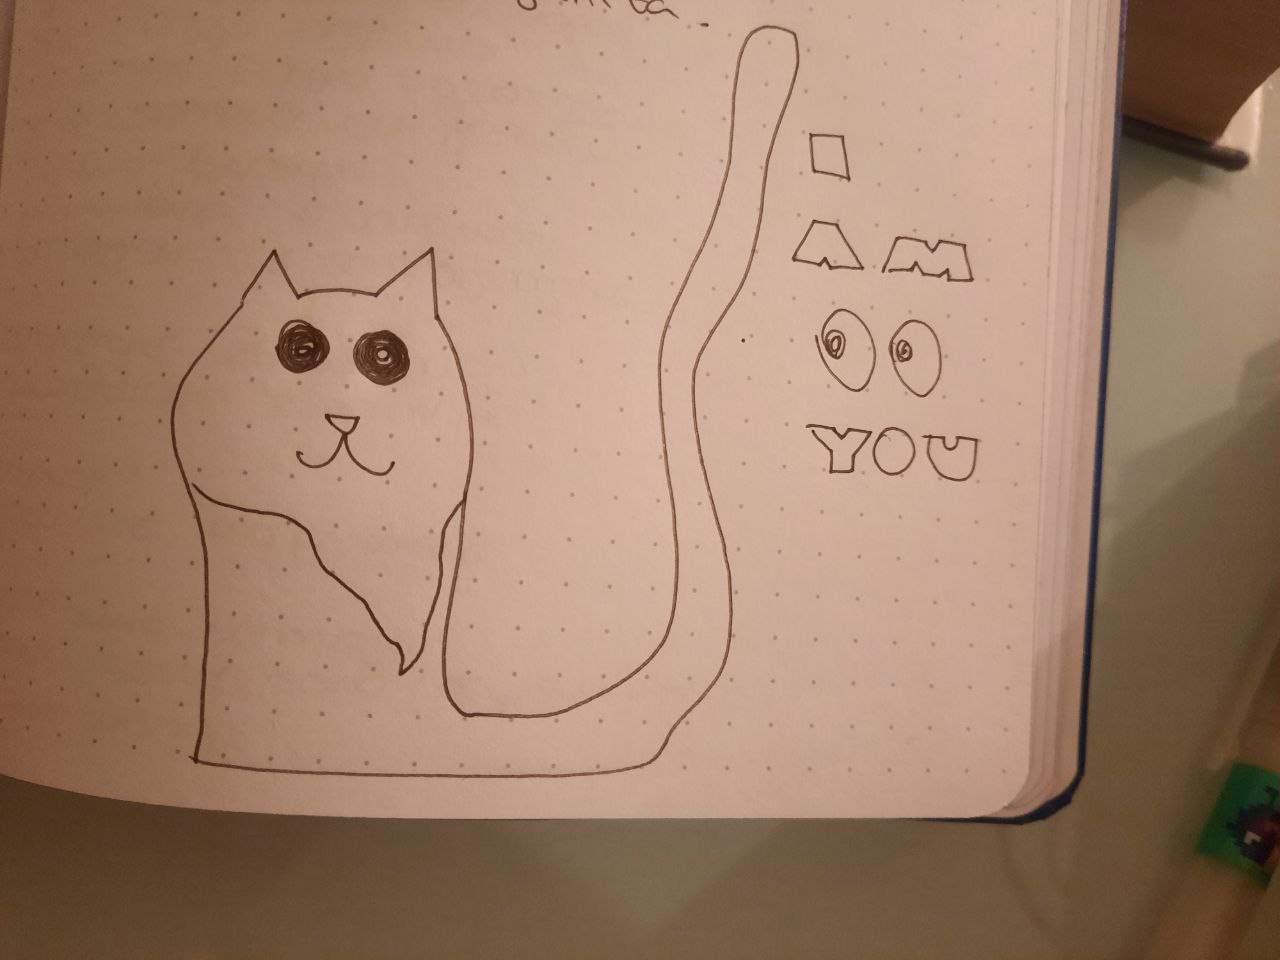 I
AM
YOU